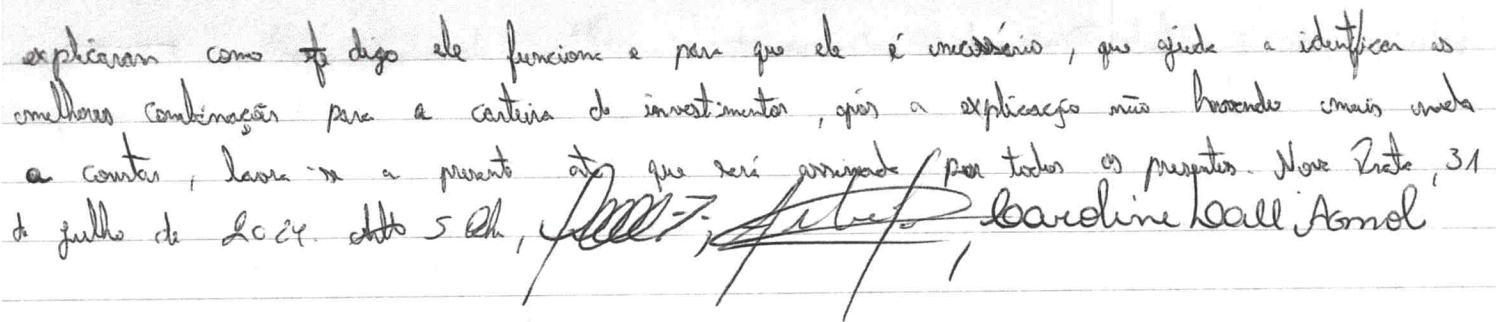 explicaram como digo ele funciona e para que ele é necessário, que ajuda a identificar as
melhores combinação para a carteira de investimentos, após a explicação não havendo mais nada
a constar, lavra-se a presente ata que será assinada por todos os presentes. Nova Prata, 31
de julho de 2024. Caroline Dall Agnol